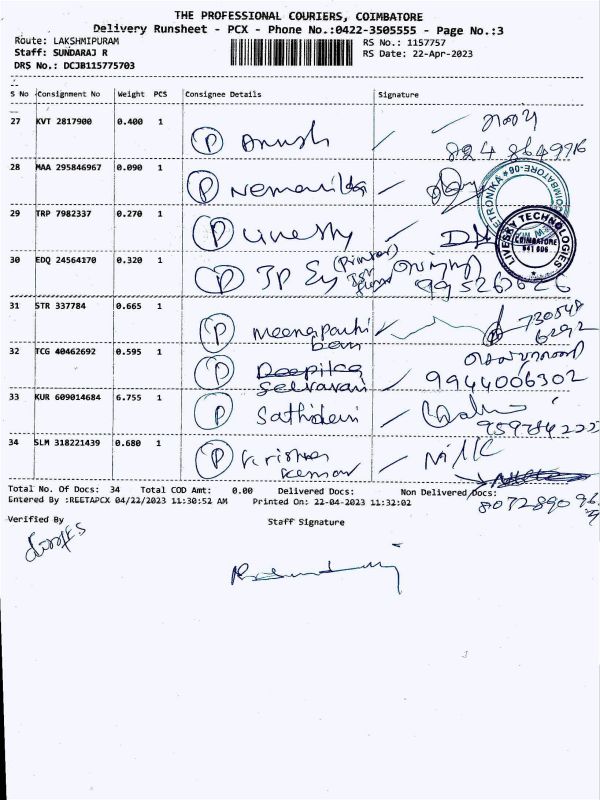 THE PROFESSIONAL COURIERS, COIMBATORE
Delivery Runsheet - PCX - Phone No.:0422-3505555 - Page No.:3
Route: LAKSHMIPURAM RS No.: 1157757
Staff: SUNDARAJ R RS Date: 22-Apr-2023
DRS No.: DCJB115775703
S No Consignment No Weight PCS Consignee Details Signature
27 KVT 2817900 0.400 1 P Anush
28 MAA 295846967 0.090 1 P
29 TRP 7982337 0.270 1 P
ETRONIKA COIMBATORE-06
LIVESKY TECHNOLOGIES
COIMBATORE
641 006
30 EDQ 24564170 0.320 1 P
31 STR 337784 0.665 1 P 730548
6292
32 TCG 40462692 0.595 1 P Deepika
Selvarani 9944006302
33 KUR 609014684 6.755 1 P Sathidevi
34 SLM 318221439 0.680 1 P Krishna
Kumar
Total No. Of Docs: 34 Total COD Amt: 0.00 Delivered Docs: Non Delivered Docs:
Entered By :REETAPCX 04/22/2023 11:30:52 AM Printed On: 22-04-2023 11:32:02
Verified By Staff Signature